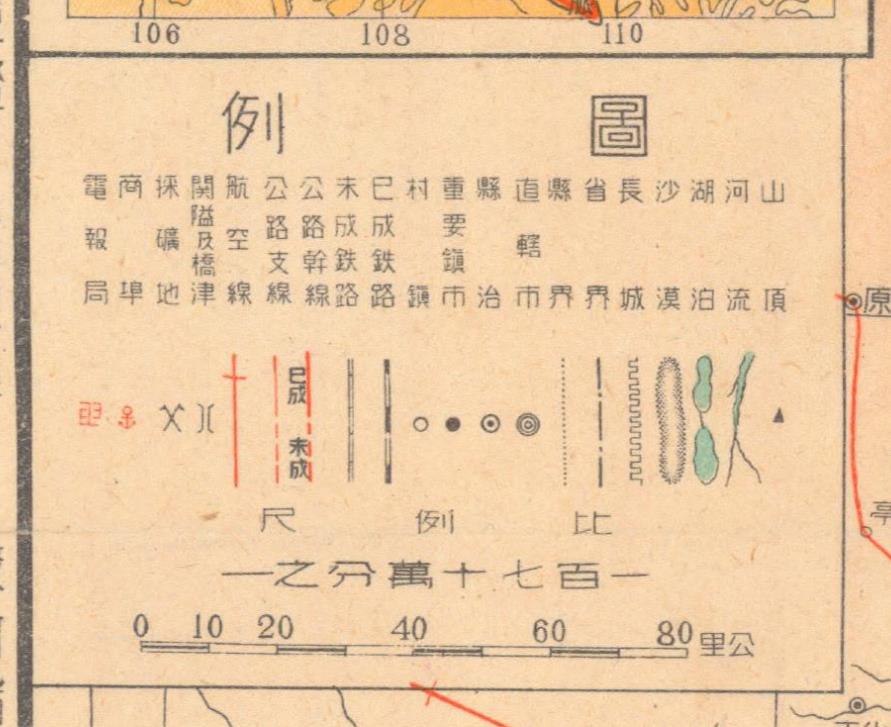 106 108 110
圖例
山頂
河流
湖泊
沙漠
長城
省界
縣界
直轄市
縣治
重要鎭市
村鎭
已成鉄路
未成鉄路
公路幹線
公路支線
航空線
関隘及橋津
採礦地
商埠
電報局
已成
未成
比例尺
一百七十萬分之一
0 10 20 40 60 80 公里
原
亭